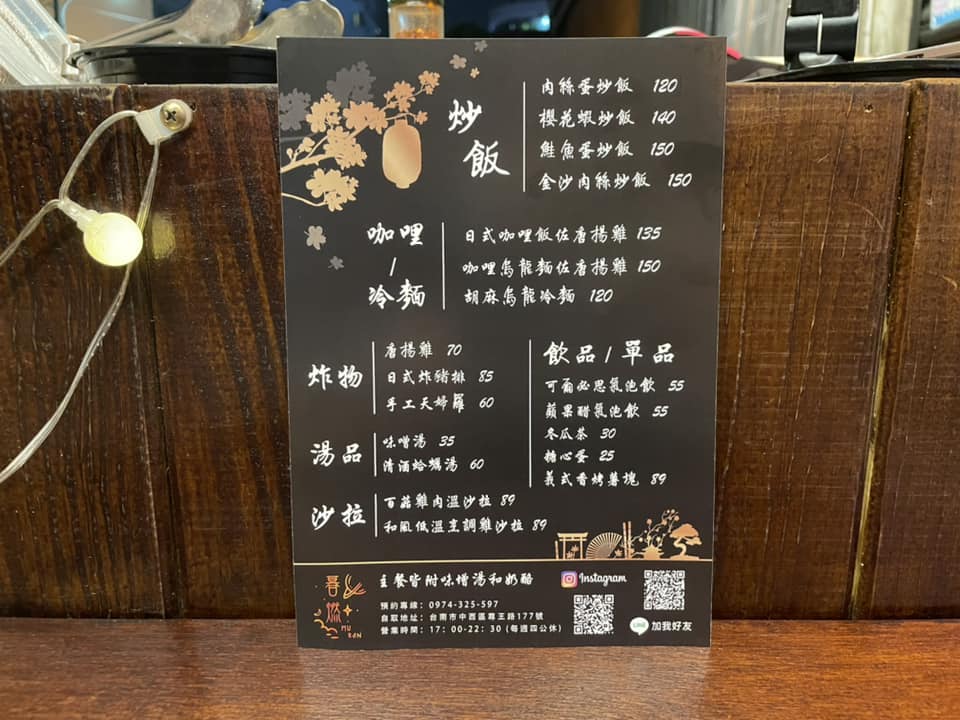 炒飯
肉絲蛋炒飯 120
櫻花蝦炒飯 140
鮭魚蛋炒飯 150
金沙肉絲炒飯 150
咖哩
/
冷麵
日式咖哩飯佐唐揚雞 135
咖哩烏龍麵佐唐揚雞 150
胡麻烏龍冷麵 120
炸物
唐揚雞 70
日式炸豬排 85
手工天婦羅 60
湯品
味噌湯 35
清酒蛤蠣湯 60
沙拉
百菇雞肉溫沙拉 89
和風低溫烹調雞沙拉 89
飲品/單品
可爾必思氣泡飲 55
蘋果醋氣泡飲 55
冬瓜茶 30
糖心蛋 25
義式香烤薯塊 89
主餐皆附味增湯和奶酪
預約專線: 0974-325-597
自取地址: 台南市中西區尊王路177號
營業時間: 17:00-22:30 (每週四公休)
Instagram
LINE 加我好友
MU
RAN